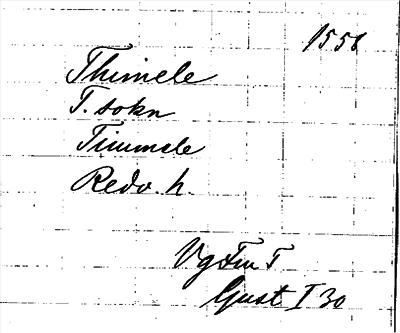 1558
Thimele
T. sokn
Timmele
Redv. h.
Vg Fm T
Gust I 30